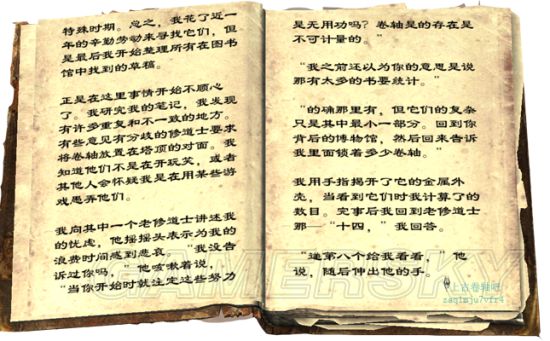 特殊时期。总之，我花了近一
年的辛勤劳动来寻找它们，但
是最后我开始整理所有在图书
馆中找到的草稿。
正是在这里事情开始不顺心
了。我研究我的笔记，我发现
有许多重复和不一致的地方。
有些意见有分歧的修道士要求
将卷轴放置在塔顶的对面。我
知道他们不是在开玩笑，或者
其他人会怀疑我是在用某些游
戏愚弄他们。
我向其中一个老修道士讲述我
的忧虑，他摇摇头表示为我的
浪费时间感到悲哀。“我没告
诉过你吗，”他咳嗽着说，
“当你开始时就注定这些努力
是无用功吗？卷轴是的存在是
不可计量的。”
“我之前还以为你的意思是说
那有太多的书要统计。”
“的确那里有，但它们的复杂
只是其中最小一部分。回到你
背后的博物馆，然后回来告诉
我里面锁着多少卷轴。”
我用手指揭开了它的金属外
壳，当看到它们时我计算了的
数目。完事后我回到老修道士
那—“十四，”我回答。
“递第八个给我看看，”他
说，随后伸出他的手。
GAMERSKY
上古卷轴吧
zaq1mju7vfr4